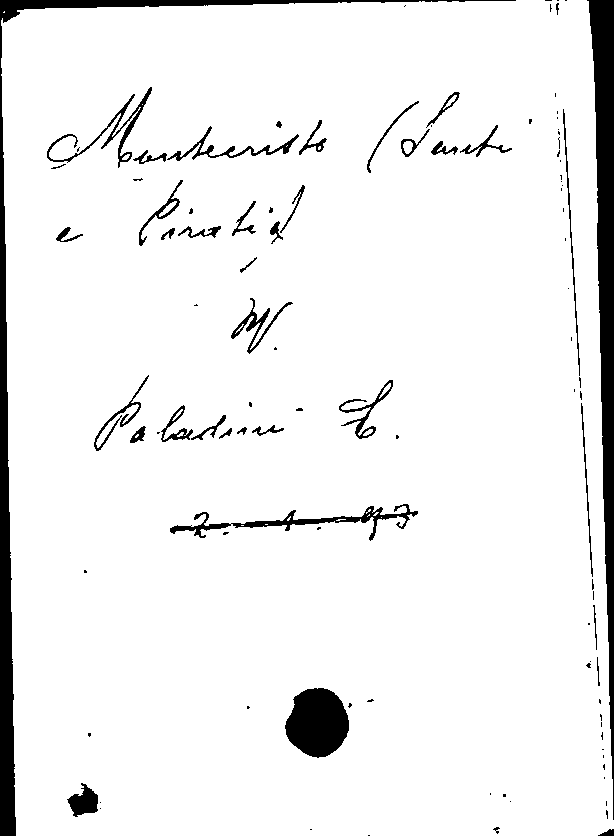 Montecristo (Santi
e Pirati)
V.
Paladini C.
2. 1. 93